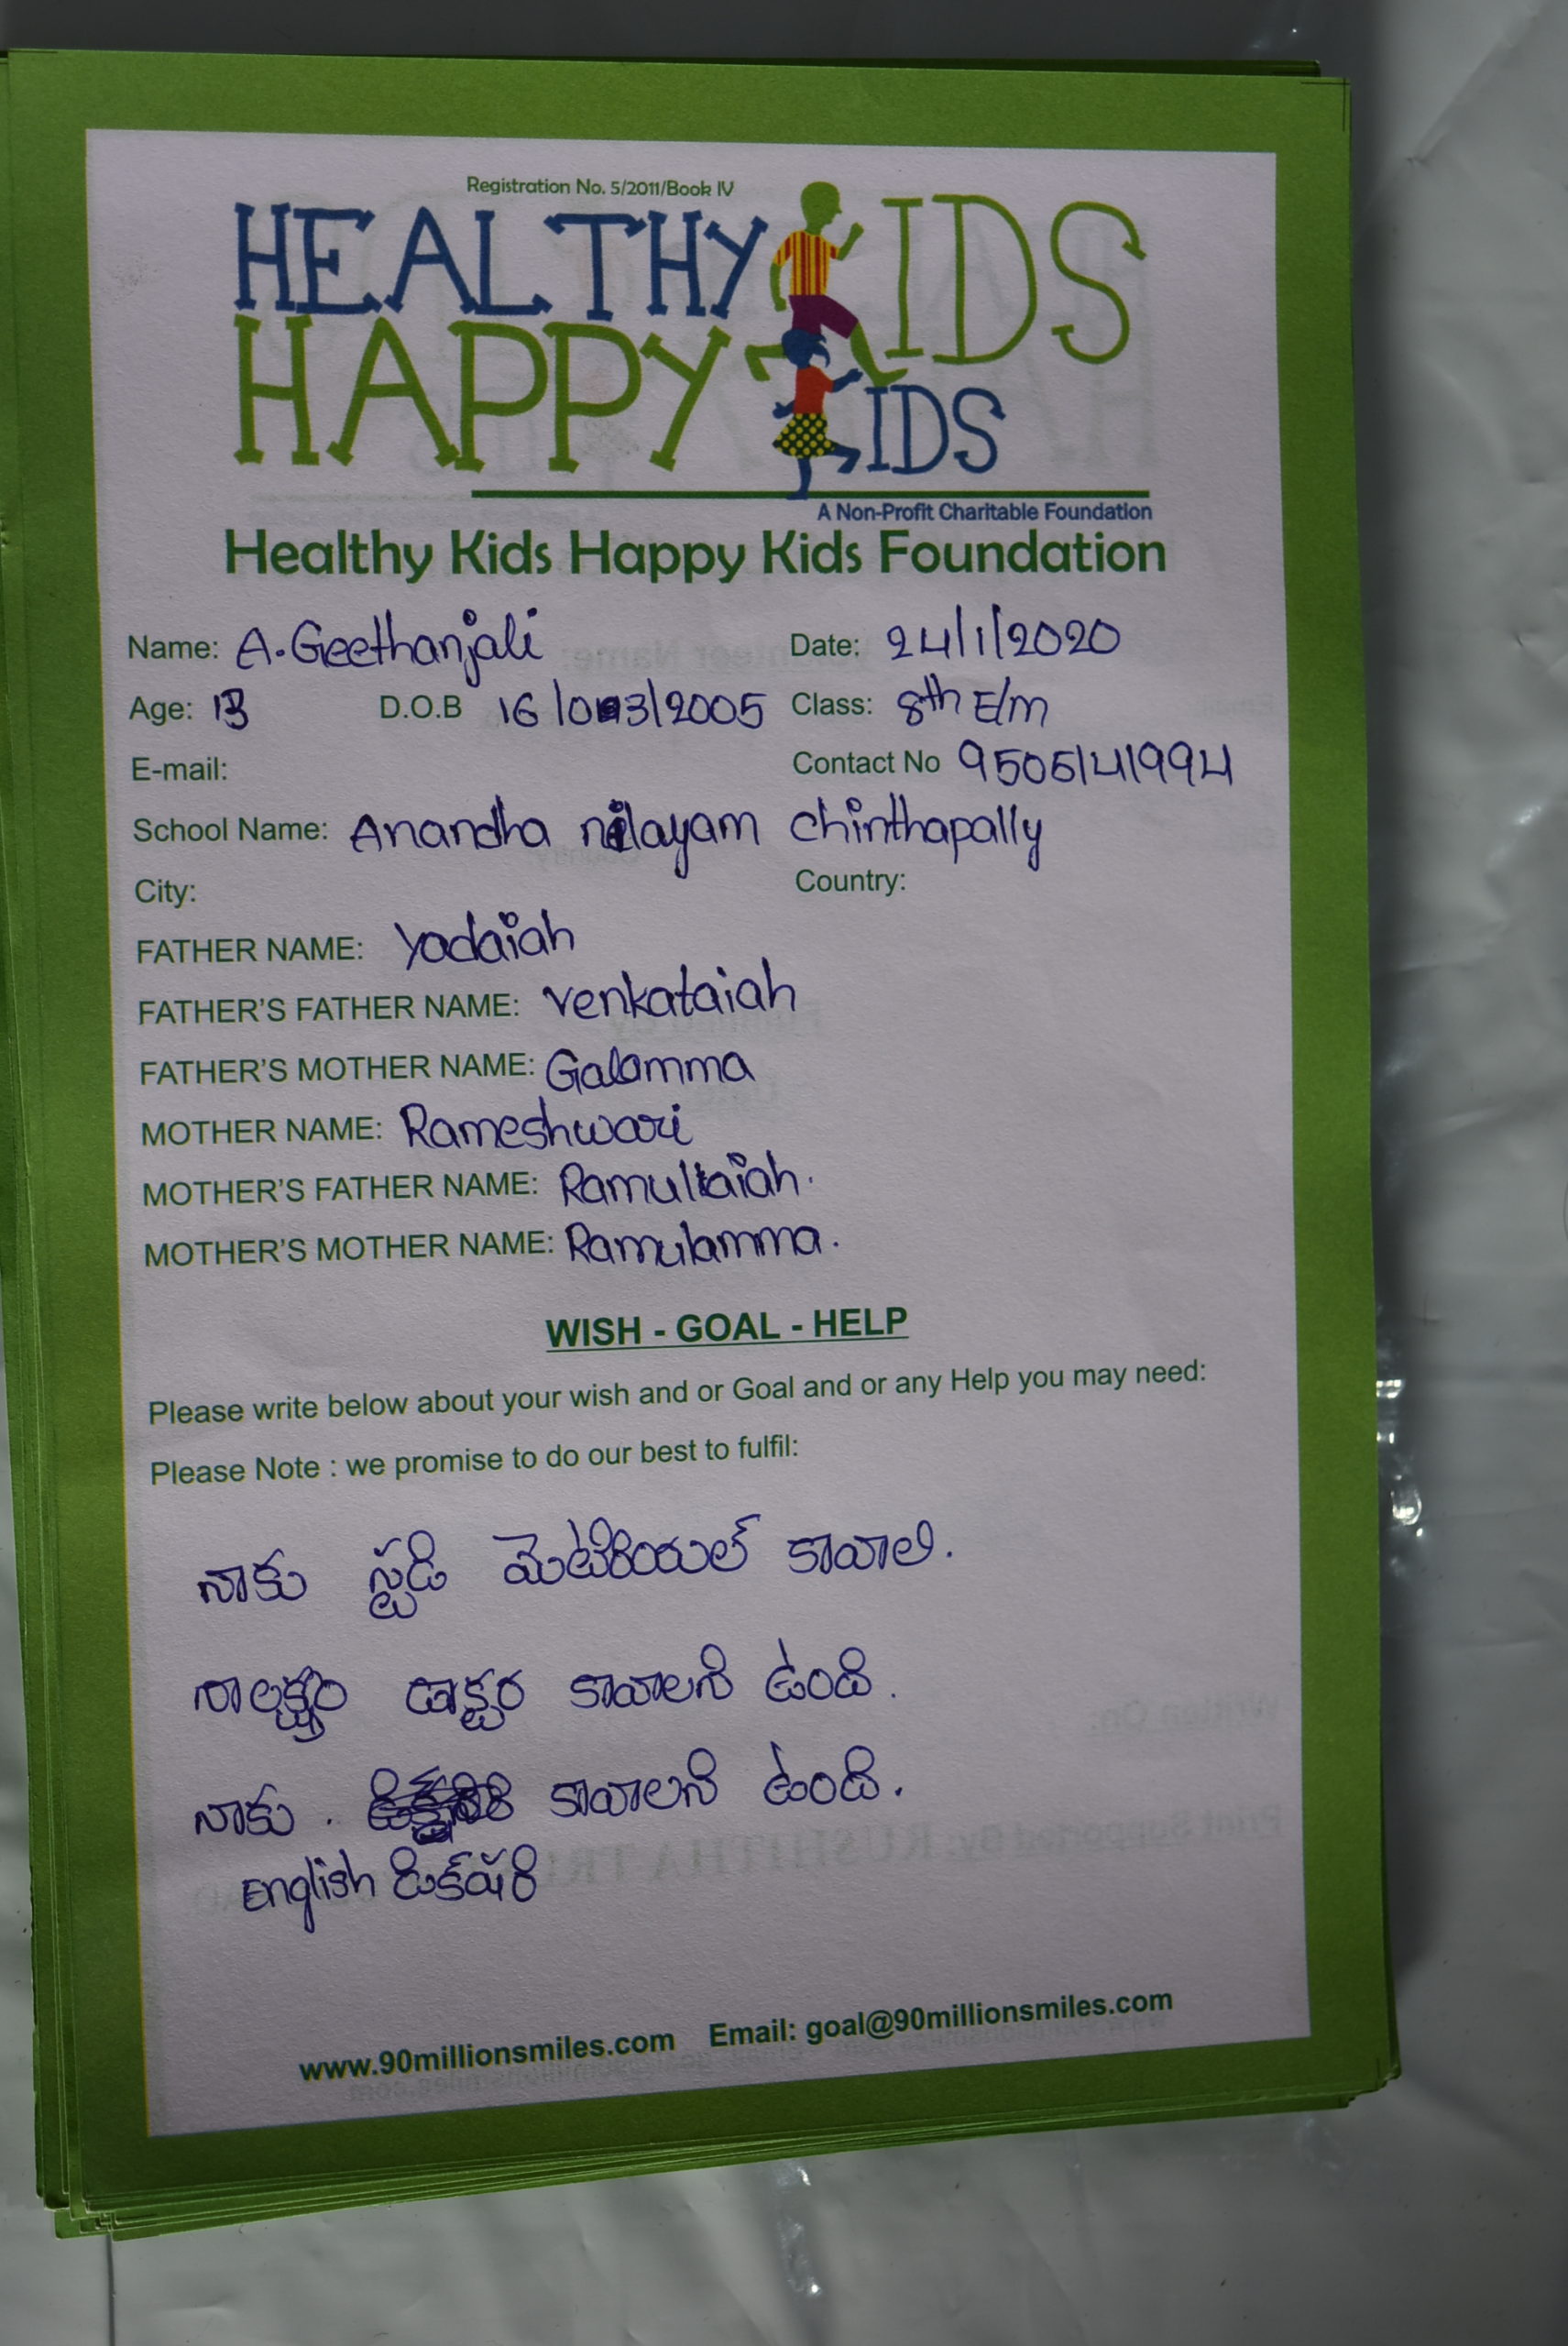 Registration No. 5/2011/Book IV
HEALTHY KIDS
HAPPY KIDS
A Non-Profit Charitable Foundation
Healthy Kids Happy Kids Foundation
Name: A. Geethanjali Date: 24/1/2020
Age: 13 D.O.B 16/03/2005 Class: 8th E/m
E-mail: Contact No 9505141994
School Name: Anandha nilayam chinthapally
City: Country:
FATHER NAME: Yadaiah
FATHER'S FATHER NAME: Venkataiah
FATHER'S MOTHER NAME: Galamma
MOTHER NAME: Rameshwari
MOTHER'S FATHER NAME: Ramullaiah.
MOTHER'S MOTHER NAME: Ramulamma.
WISH - GOAL - HELP
Please write below about your wish and or Goal and or any Help you may need:
Please Note : we promise to do our best to fulfil:
నాకు స్టడి మెటిరియల్ కావాలి.
నా లక్ష్యం డాక్టర కావాలని ఉంది.
నాకు . కావాలని ఉంది.
English డిక్షనరి
www.90millionsmiles.com Email: goal@90millionsmiles.com